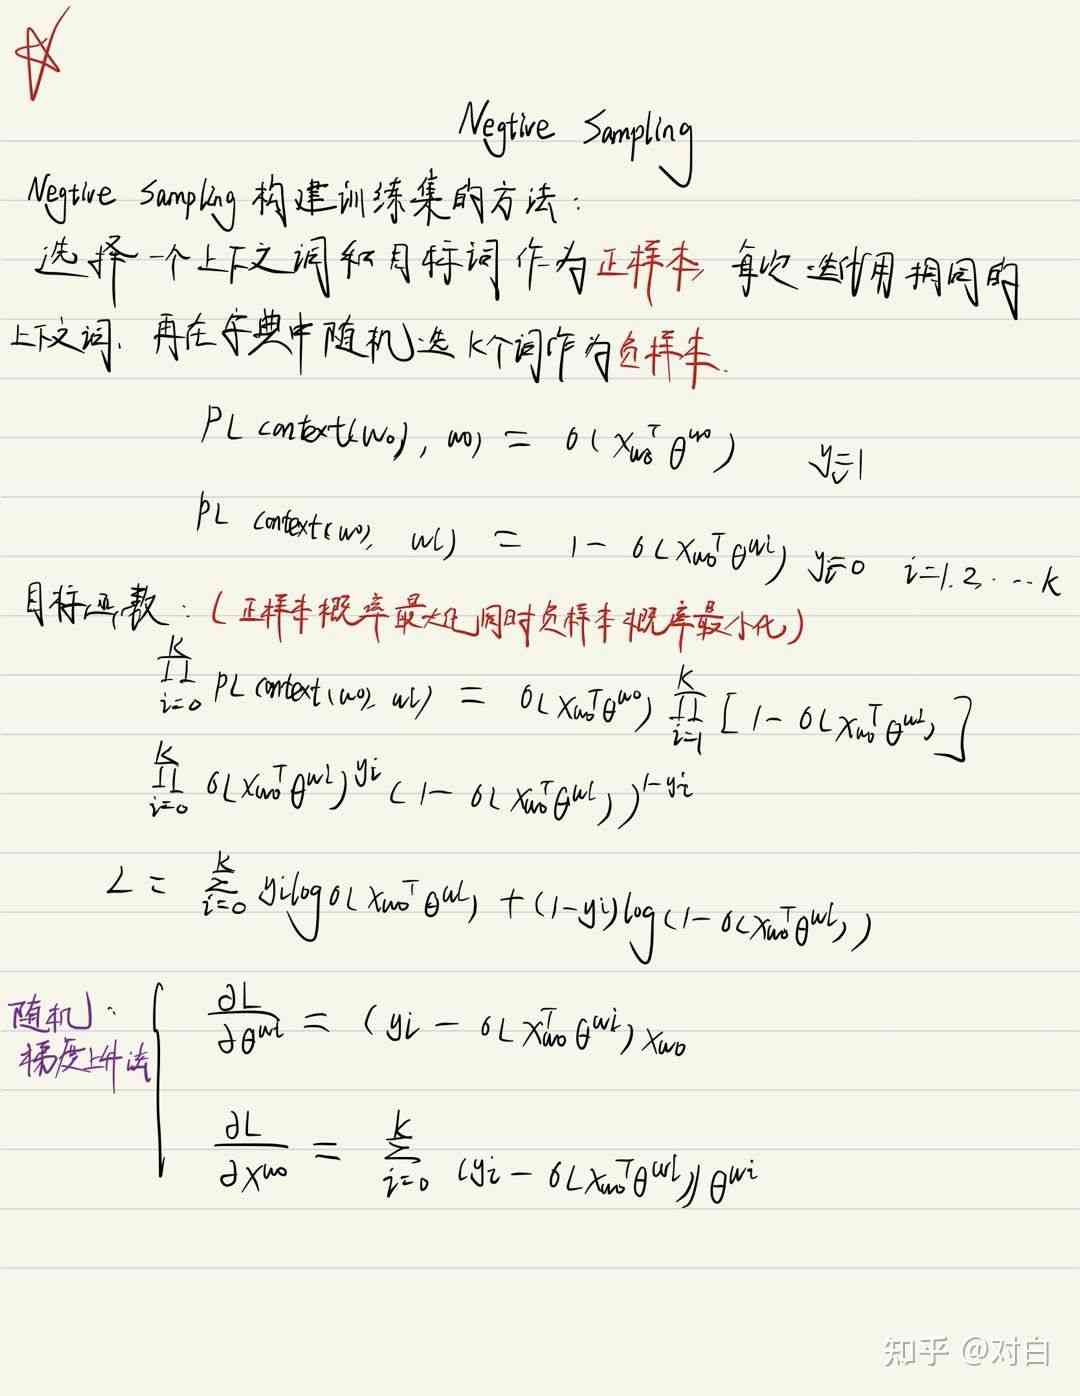 Negtive Sampling
Negtive Sampling 构建训练集的方法：
选择一个上下文词和目标词作为正样本，每次迭代用相同的
上下文词，再在字典中随机选 K个词作为负样本．
P(context(w₀), w₀) = σ(x_{w₀}^T θ^{w₀}) yᵢ=1
P(context(w₀), wᵢ) = 1 − σ(x_{w₀}^T θ^{wᵢ}) yᵢ=0 i=1.2. ⋯ K
目标函数：（正样本概率最大化同时负样本概率最小化）
∏_{i=0}^{K} P(context(w₀), wᵢ) = σ(x_{w₀}^T θ^{w₀}) ∏_{i=1}^{K} [1 − σ(x_{w₀}^T θ^{wᵢ})]
∏_{i=0}^{K} σ(x_{w₀}^T θ^{wᵢ})^{yᵢ} (1 − σ(x_{w₀}^T θ^{wᵢ}))^{1−yᵢ}
L = ∑_{i=0}^{K} yᵢ log σ(x_{w₀}^T θ^{wᵢ}) + (1−yᵢ) log(1 − σ(x_{w₀}^T θ^{wᵢ}))
随机：
梯度上升法
∂L/∂θ^{wᵢ} = (yᵢ − σ(x_{w₀}^T θ^{wᵢ})) x_{w₀}
∂L/∂x^{w₀} = ∑_{i=0}^{K} (yᵢ − σ(x_{w₀}^T θ^{wᵢ})) θ^{wᵢ}
知乎 @对白